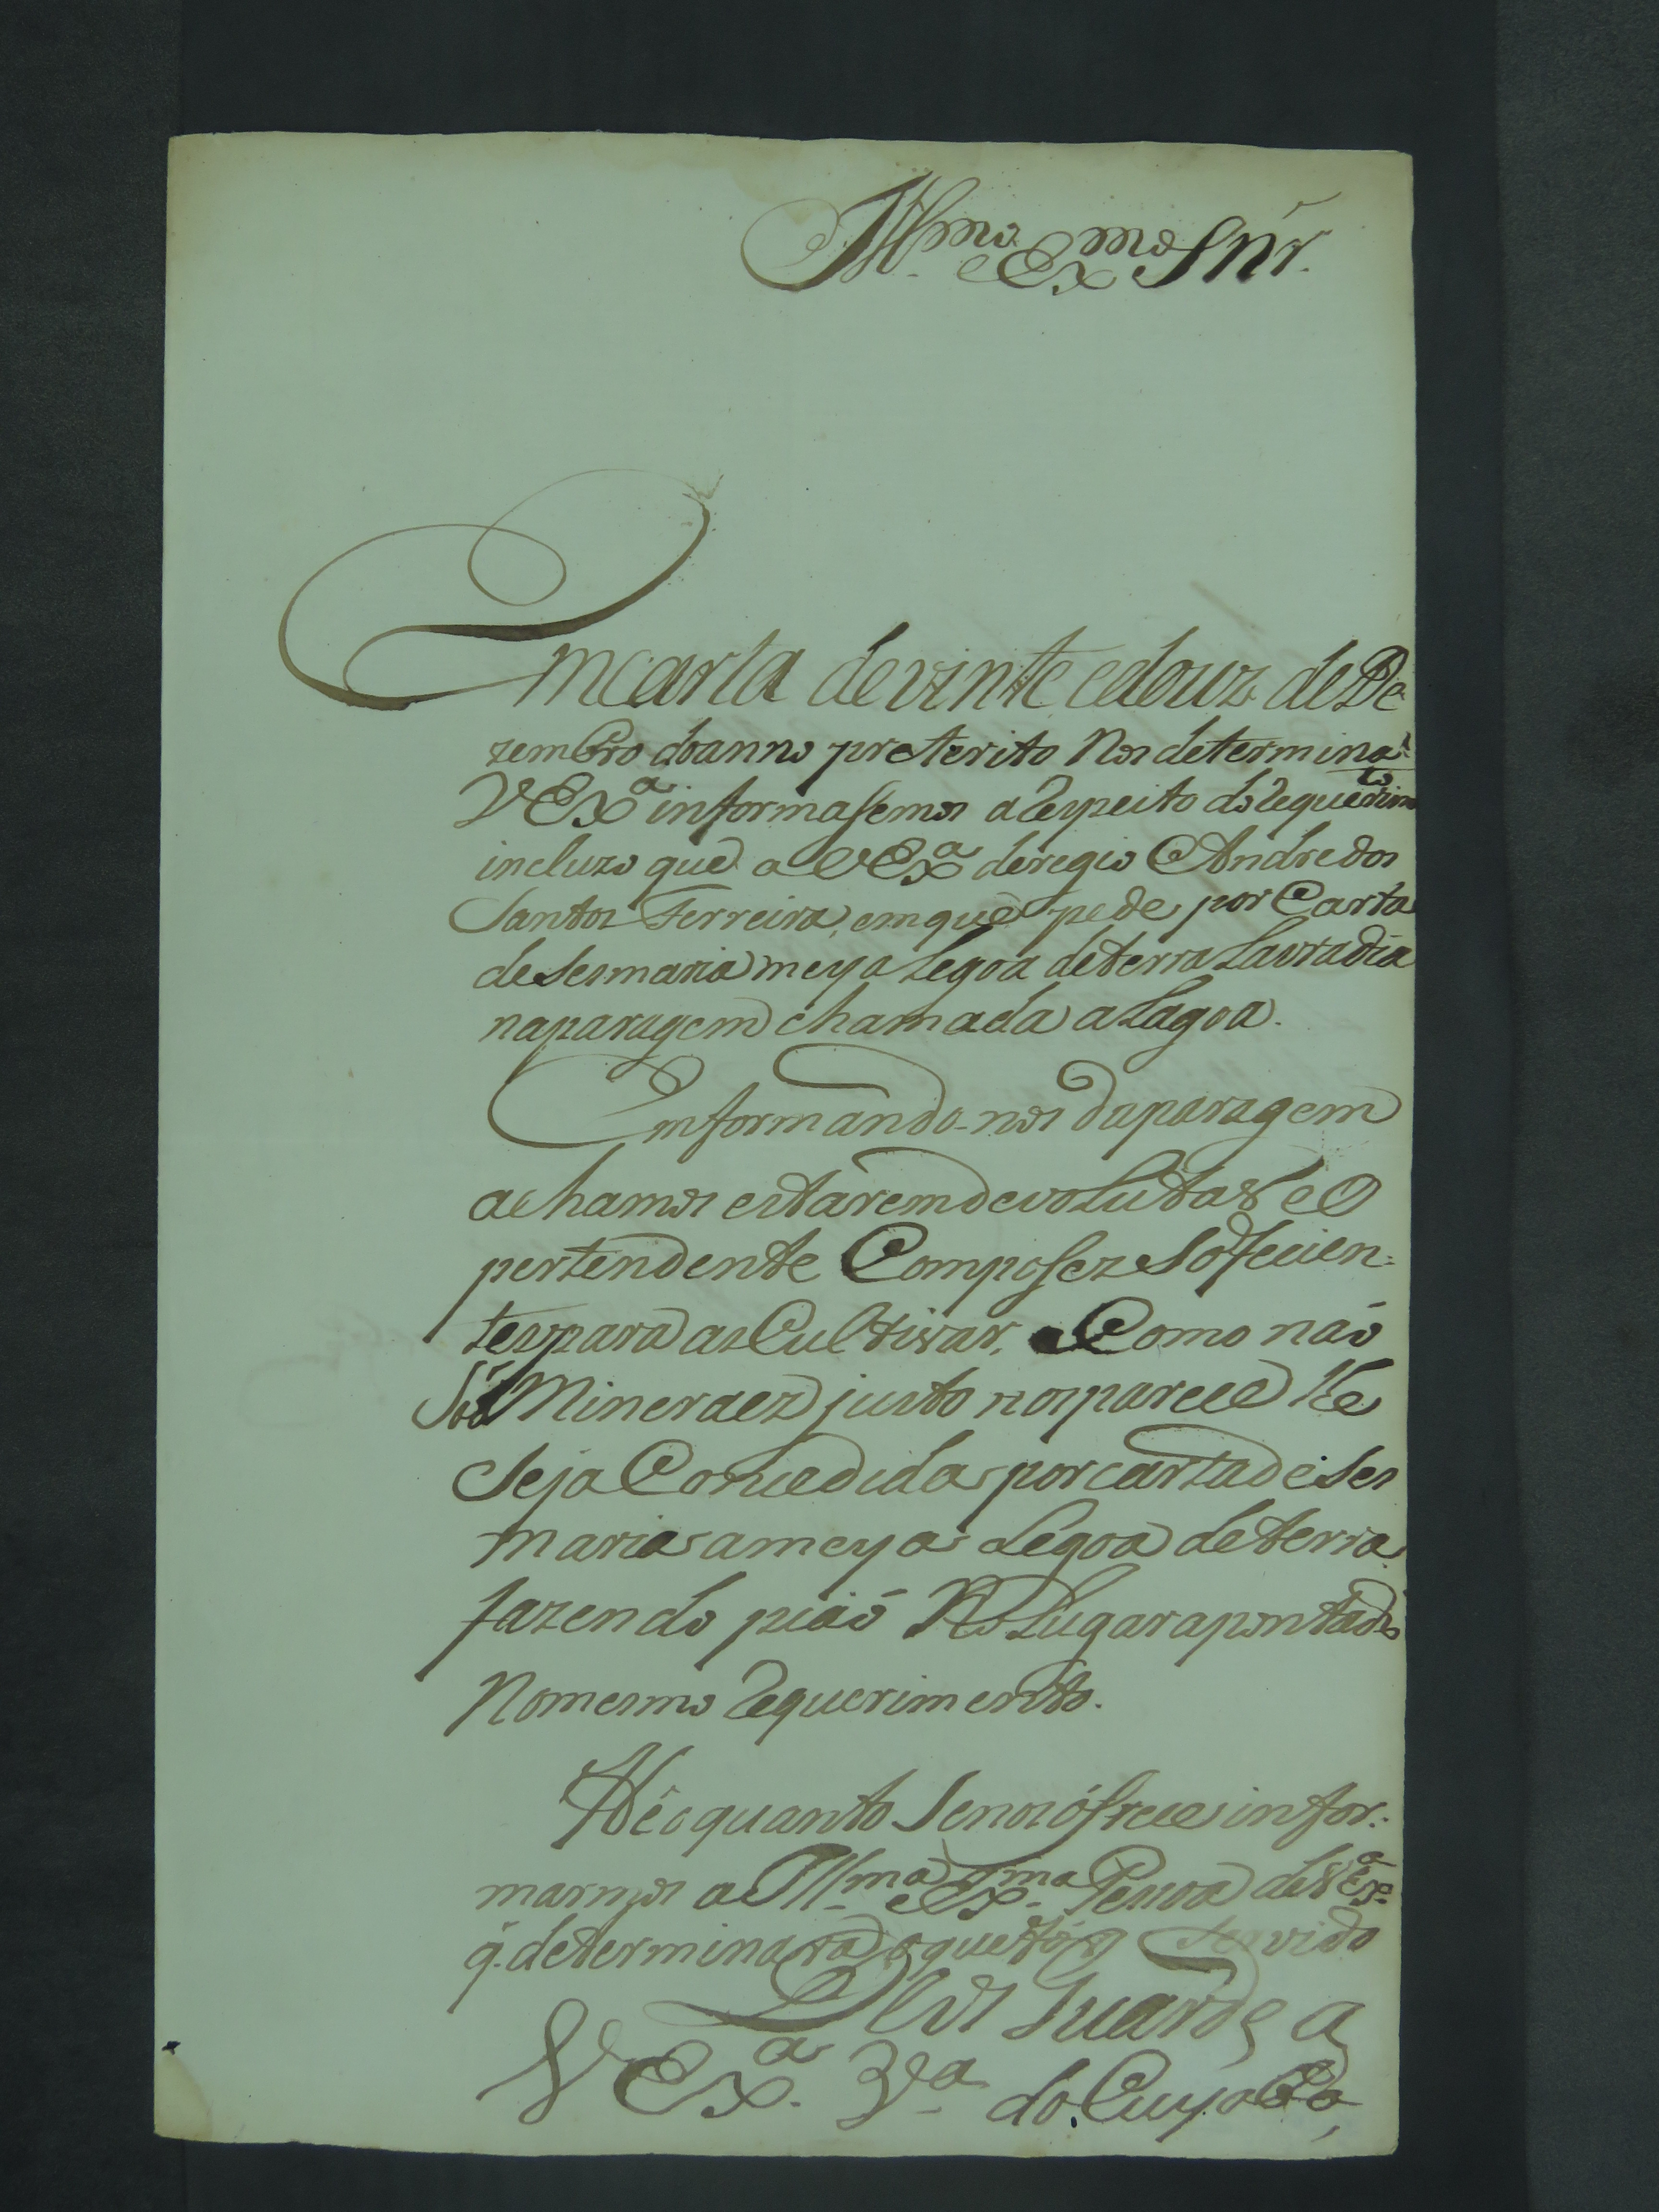 Illmo. e Exmo Snr.
Em carta de vinte e douz de De
zembro do anno preterito Nos determina
VExa informasemos a Respeito do Requerimto
incluzo que a VExa deregio Andre dos
Santos Ferreira, em que pede por Carta
de Sesmaria meya Legoa de terra Lavradia
na paragem chamada a Lagoa.
Informando-nos da paragem
achamos estarem devolutas e o
pertendente Com posses Soficien-
tes para as Cultivar, e Como não
São Mineraez justo nos parece lhe
Seja Concedida por carta de Ses
maria a meya Legoa de terra
fazendo pião No Lugar apontado
No mesmo Requerimento.
He o quanto Se nos ófrece infor-
marmos a Illma e Exma Pessoa de VExa
q. determinará o que fôr Servido
Deos Guarde a
VExa. Va do Cuyabá,